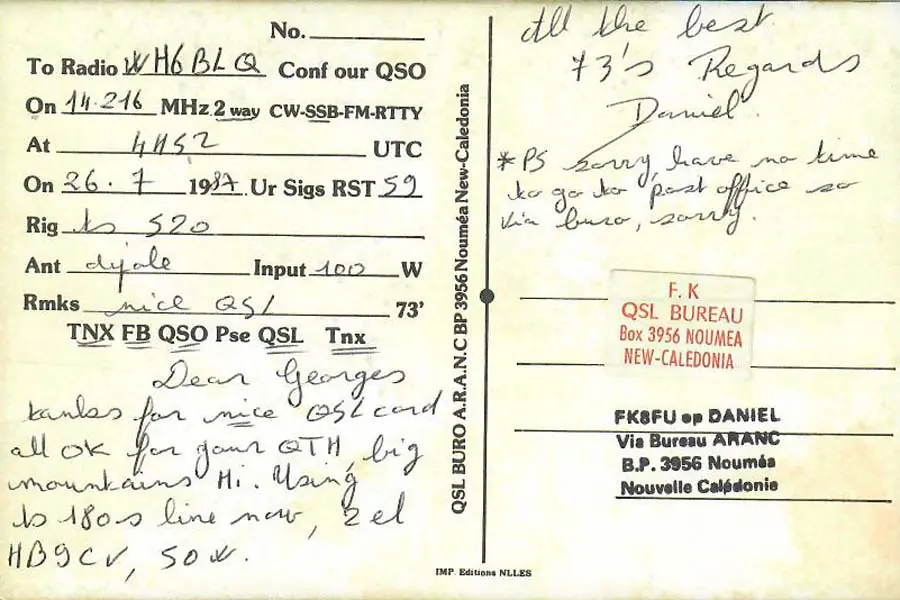 No.
To Radio WH6BLQ Conf our QSO
On 14.216 MHz 2 way CW-SSB-FM-RTTY
At 4H52 UTC
On 26. 7 1987 Ur Sigs RST 59
Rig ts 520
Ant dipole Input 100 W
Rmks nice QSL 73'
TNX FB QSO Pse QSL Tnx
Dear Georges
tanks for nice QSL card
all OK for your QTH, big
mountains Hi. Using
ts 180s line now, 2 el
HB9CV, 50w.
QSL BURO A.R.A.N.C BP 3956 Nouméa New-Caledonia
All the best
73's Regards
Daniel.
*PS sorry, have no time
to go to post office so
via buro, sorry.
F.K
QSL BUREAU
Box 3956 NOUMEA
NEW-CALEDONIA
FK8FU op DANIEL
Via Bureau ARANC
B.P. 3956 Nouméa
Nouvelle Calédonie
IMP. Editions NLLES